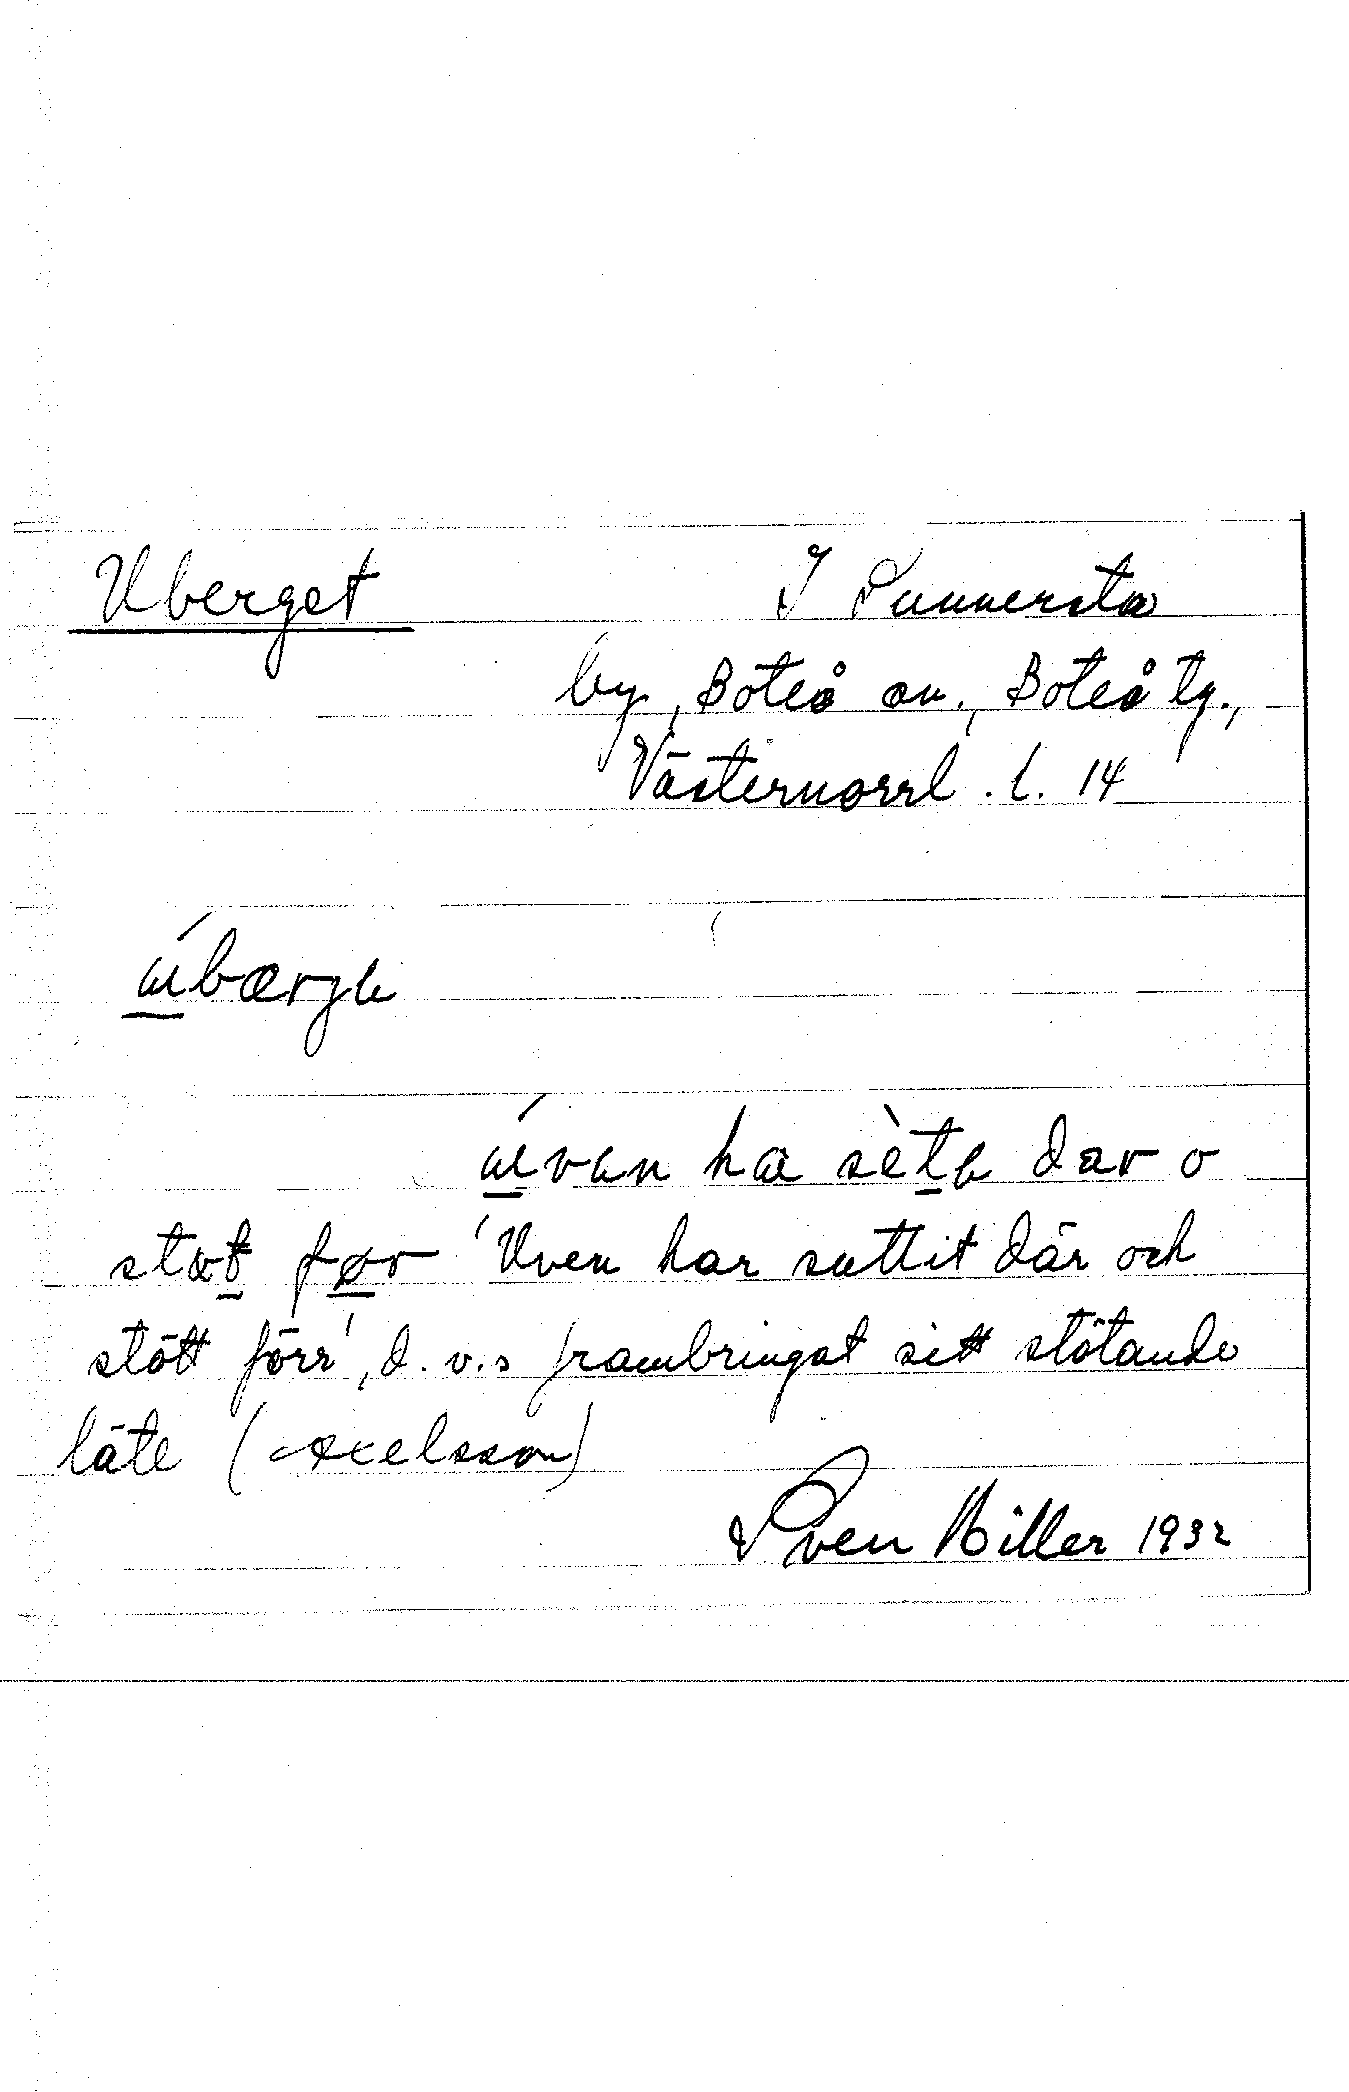 Uberget
I Sunnersta
by, Boteå sn., Boteå tg.,
Västernorrl. l. 14
ú̲bærjɐ
ú̲vɐn ha sèt̲ɐ dær o
støt̲ fø̲r 'Uven har suttit där och
stött förr', d. v. s frambringat sitt stötande
läte (Axelsson)
Sven Hiller 1932